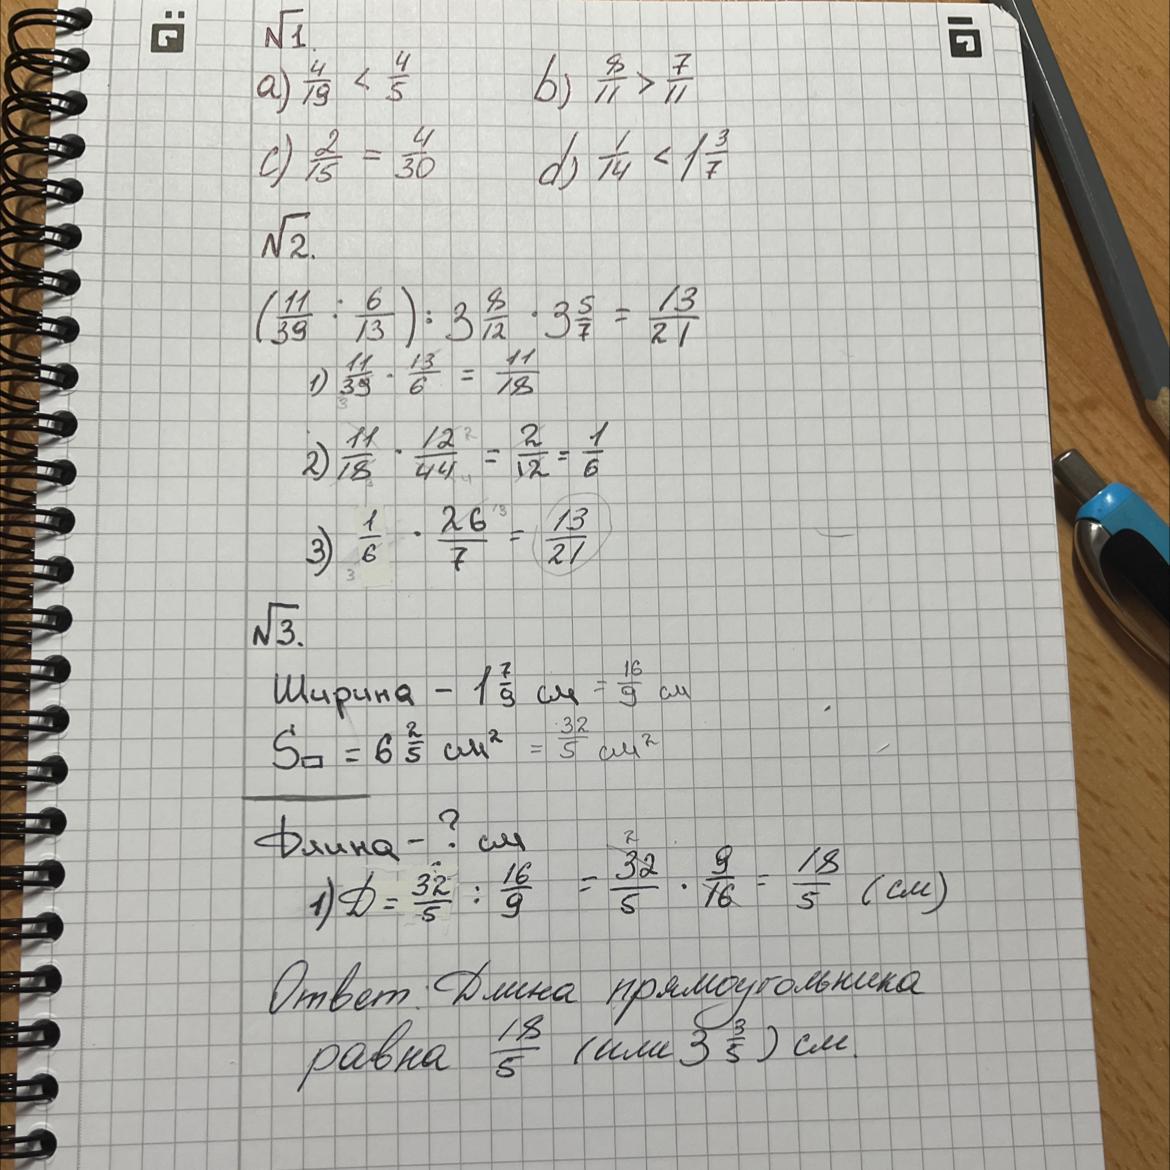 №1.
a) 4/19 < 4/5 b) 8/11 > 7/11
c) 2/15 = 4/30 d) 1/14 < 1 3/7
№2.
(11/39 : 6/13) : 3 8/12 · 3 5/7 = 13/21
1) 11/39 · 13/6 = 11/18
3
2) 11/18 · 12/44 = 2/12 = 1/6
2 3 4
3) 1/6 · 26/7 = 13/21
13 3
№3.
Ширина – 1 7/9 см = 16/9 см
S▭ = 6 2/5 см² = 32/5 см²
Длина – ? см
1) D = 32/5 : 16/9 = 32/5 · 9/16 = 18/5 (см)
2
Ответ: Длина прямоугольника
равна 18/5 (или 3 3/5) см.